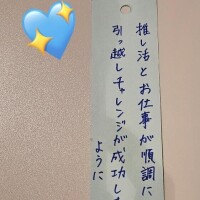 推し活とお仕事が順調に
引っ越しチャレンジが成功した
ように